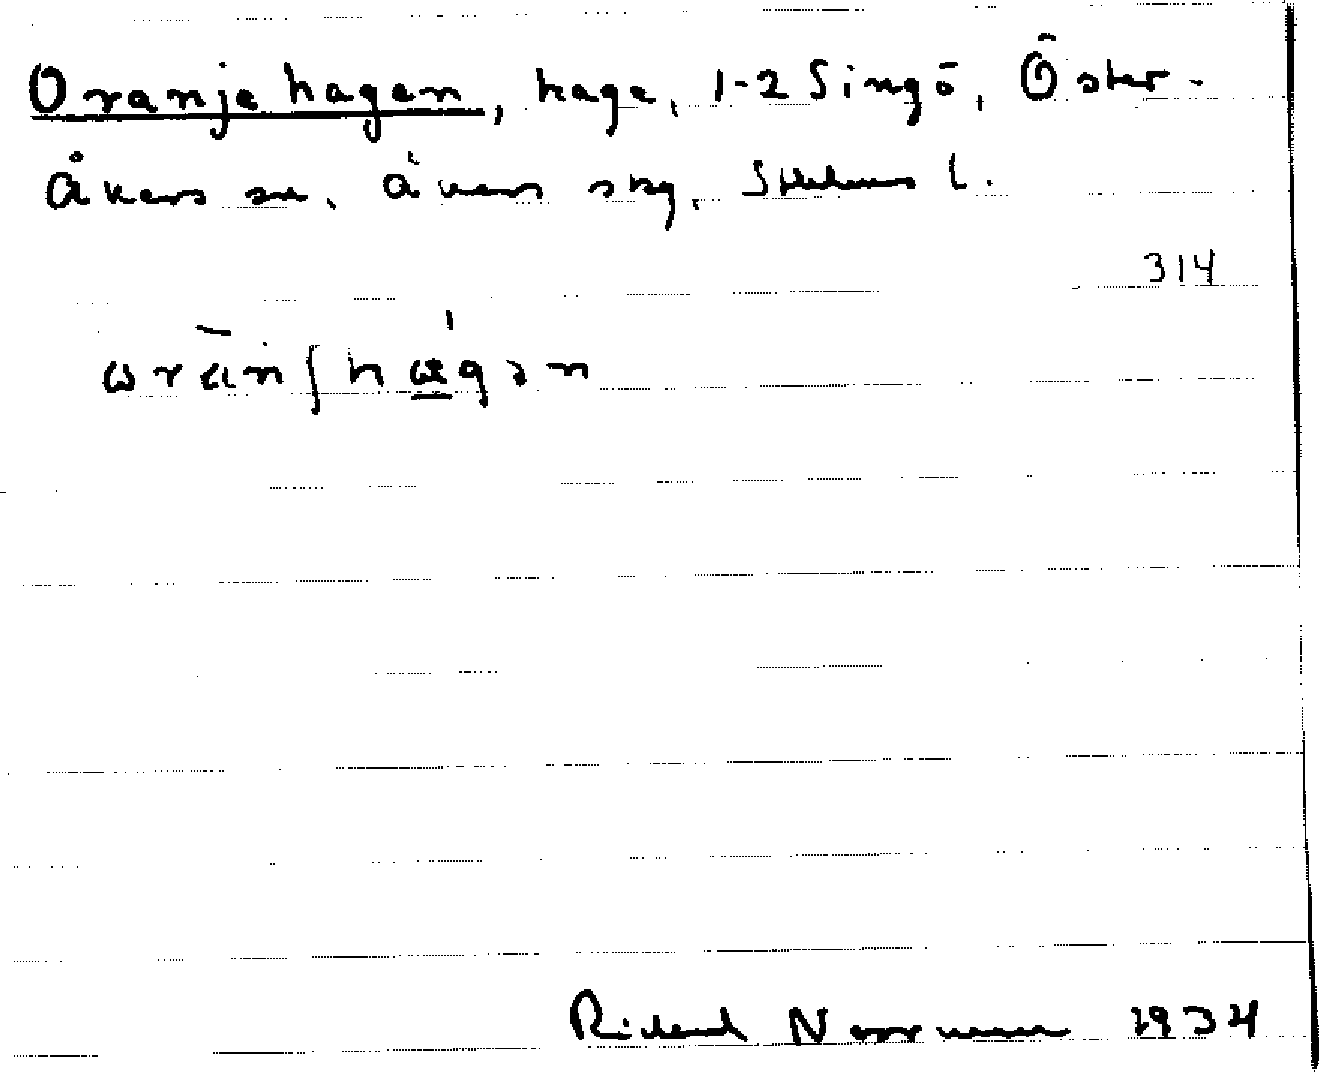 Oranjehagen, hage, 1-2 Singö, Öster-
Åkers sn, Åkers skg. Sthlms l.
314
ωranʃhagən
Rickard Norrman 1934